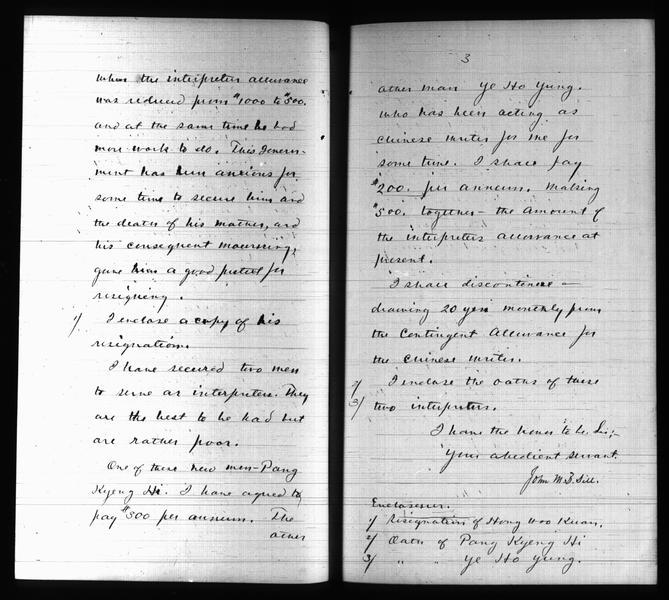 when the interpreters allowance
was reduced from $1000 to $500.
and at the same time he had
more work to do. This Govern-
ment has been anxious for
some time to secure him and
the death of his mother, and
his consequent mourning,
gave him a good pretext for
resigning.
1/ I enclose a copy of his
resignation.
I have secured two men
to serve as interpreters. They
are the best to be had but
are rather poor.
One of these new men - Pang
Kyeng Hi. I have agreed to
pay $300 per annum. The
other
3
other man Ye Ho Yung.
who has been acting as
Chinese writer for me for
some time. I shall pay
$200. per annum. Making
$500. together - the amount of
the interpreters allowance at
present.
I shall discontinue -
drawing 20 yen monthly from
the Contingent Allowance for
the Chinese writer.
2/ I enclose the oaths of these
3/ two interpreters.
I have the honor to be, Sir;-
Your obedient servant.
John M. B. Sill.
Enclosures.
1/ Resignation of Hong Woo Kuan.
2/ Oath of Pang Kyeng Hi
3/ " " Ye Ho Yung.